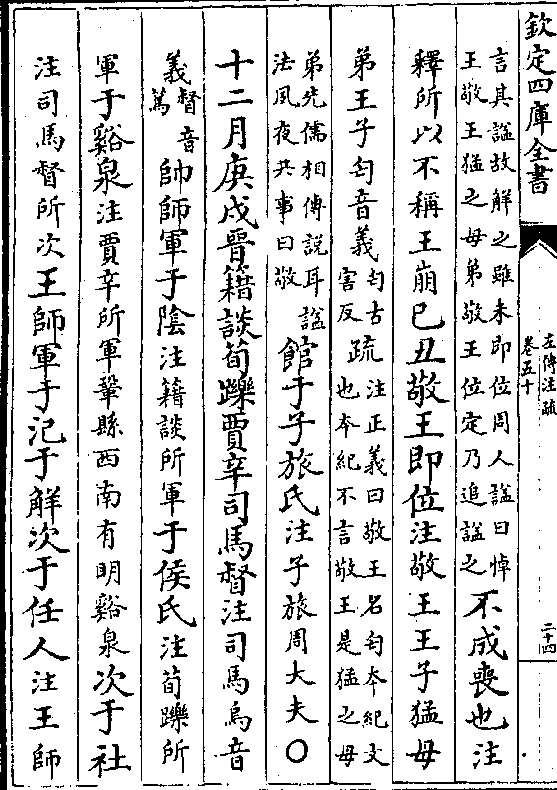 欽定四庫全書
左傳注疏
卷五十
二十四
言其諡故解之雖未即位周人諡曰悼
王敬王猛之母弟敬王位定乃追諡之
不成喪也注
釋所以不稱王崩已丑敬王即位注敬王王子猛母
弟王子匄音義
匄古
害反
疏
注正義曰敬王名匄本紀文
也本紀不言敬王是猛之母
弟先儒相傳說耳諡
法夙夜共事曰敬
館于子旅氏注子旅周大夫○
十二月庚戌晉籍談荀躒賈辛司馬督注司馬烏音
義
督音
篤
帥師軍于陰注籍談所軍于侯氏注荀躒所
軍于谿泉注賈辛所軍鞏縣西南有明谿泉次于社
注司馬督所次王師軍于氾于解次于任人注王師